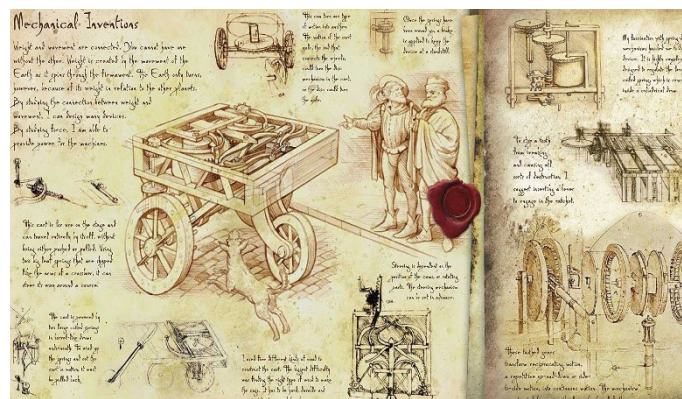 Mechanical Inventions
Weight and movement are connected. You cannot have one
without the other. Weight is created by the movement of the
Earth as it spins through the firmament. The Earth only turns,
however, because of its weight in relation to the other planets.
By studying the connection between weight and
movement, I can design many devices.
By studying force, I am able to
provide power for the machines.
This cart is for use on the stage and
can travel entirely by itself, without
being either pushed or pulled. Using
two big leaf springs that are shaped
like the arms of a crossbow, it can
steer its way around a course.
The cart is powered by
two large coiled springs
in barrel-like drums
underneath. To wind up
the springs and set the
cart in motion, it must
be pulled back.
This cam
of action into another.
The motion of the cart
and that
connects the wheels,
could turn the
mechanism in the cart,
or the disc could turn
the
Once the springs have
been wound up, a brake
is applied to keep the
device at a standstill.
Steering is dependent on the
position of the cams, or rotating
parts. The steering mechanism
can be set in advance.
I used five different kinds of wood to
construct the cart. The biggest difficulty
was finding the right type of wood to make
the cogs. It has to be hard, durable and
My fascination with spring-d
mechanisms has led me to
device. It is highly
designed to regulate the
coiled spring which is
inside a cylindrical drum.
To stop a tooth
from breaking,
and causing all
sorts of destruction, I
suggest inserting a lever
to engage in the ratchet.
These toothed gears
transform reciprocating motion,
a repetitive up-and-down or side-
to-side motion, into continuous motion. The mechanism